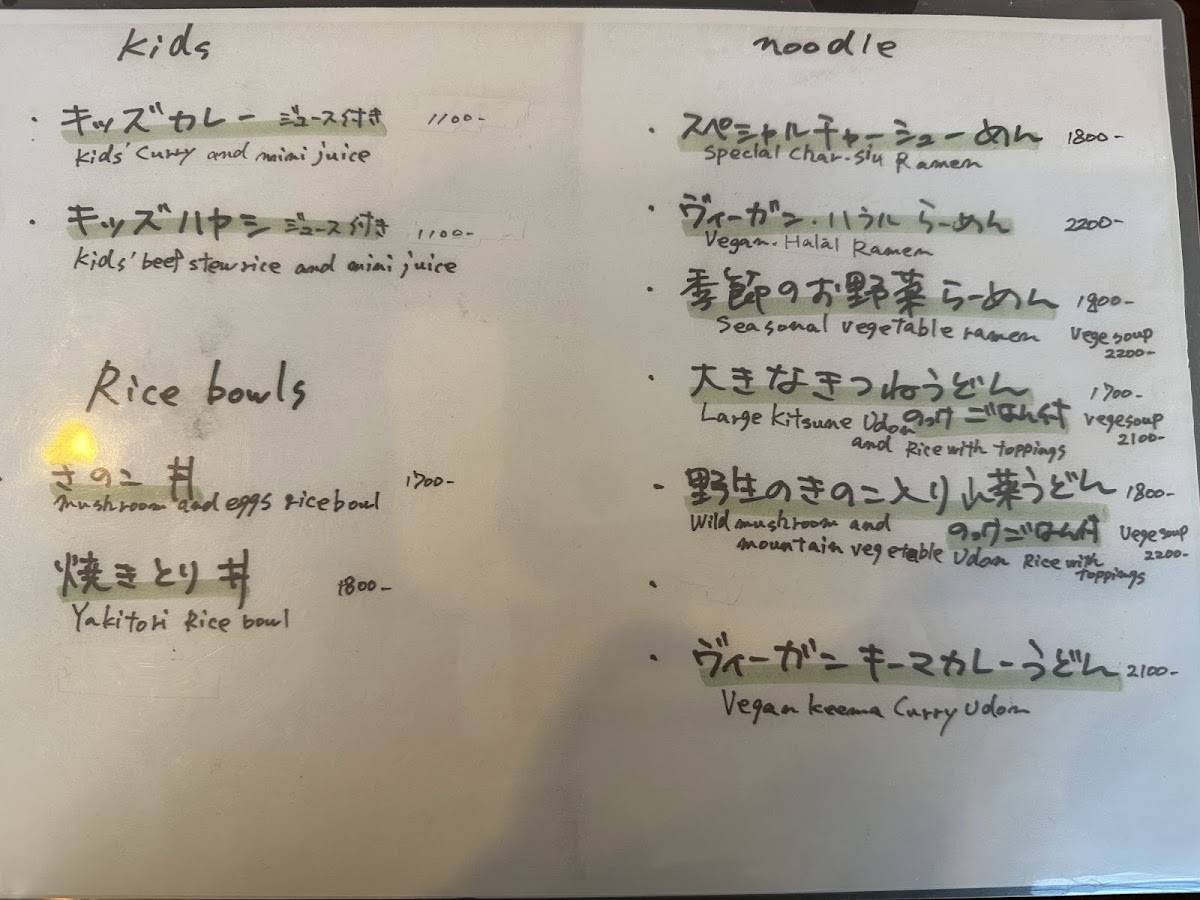 Kids
・キッズカレー ジュース付き 1100-
Kids' Curry and mini juice
・キッズハヤシ ジュース付き 1100-
Kids' beef stew rice and mini juice
Rice bowls
・きのこ丼 1700-
mushroom and eggs rice bowl
焼きとり丼 1800-
Yakitori Rice bowl
noodle
・スペシャルチャーシューめん 1800-
Special Char-siu Ramen
・ヴィーガン・ハラル らーめん 2200-
Vegan・Halal Ramen
・季節のお野菜らーめん 1800-
Seasonal vegetable ramen Vege soup
2200-
・大きなきつねうどん 1700-
Large Kitsune Udon のっけごはん付 vege soup
and Rice with toppings 2100-
・野生のきのこ入り山菜うどん 1800-
Wild mushroom and のっけごはん付 Vege soup
mountain vegetable Udon Rice with 2200-
toppings
・
・ヴィーガンキーマカレーうどん 2100-
Vegan keema Curry Udon